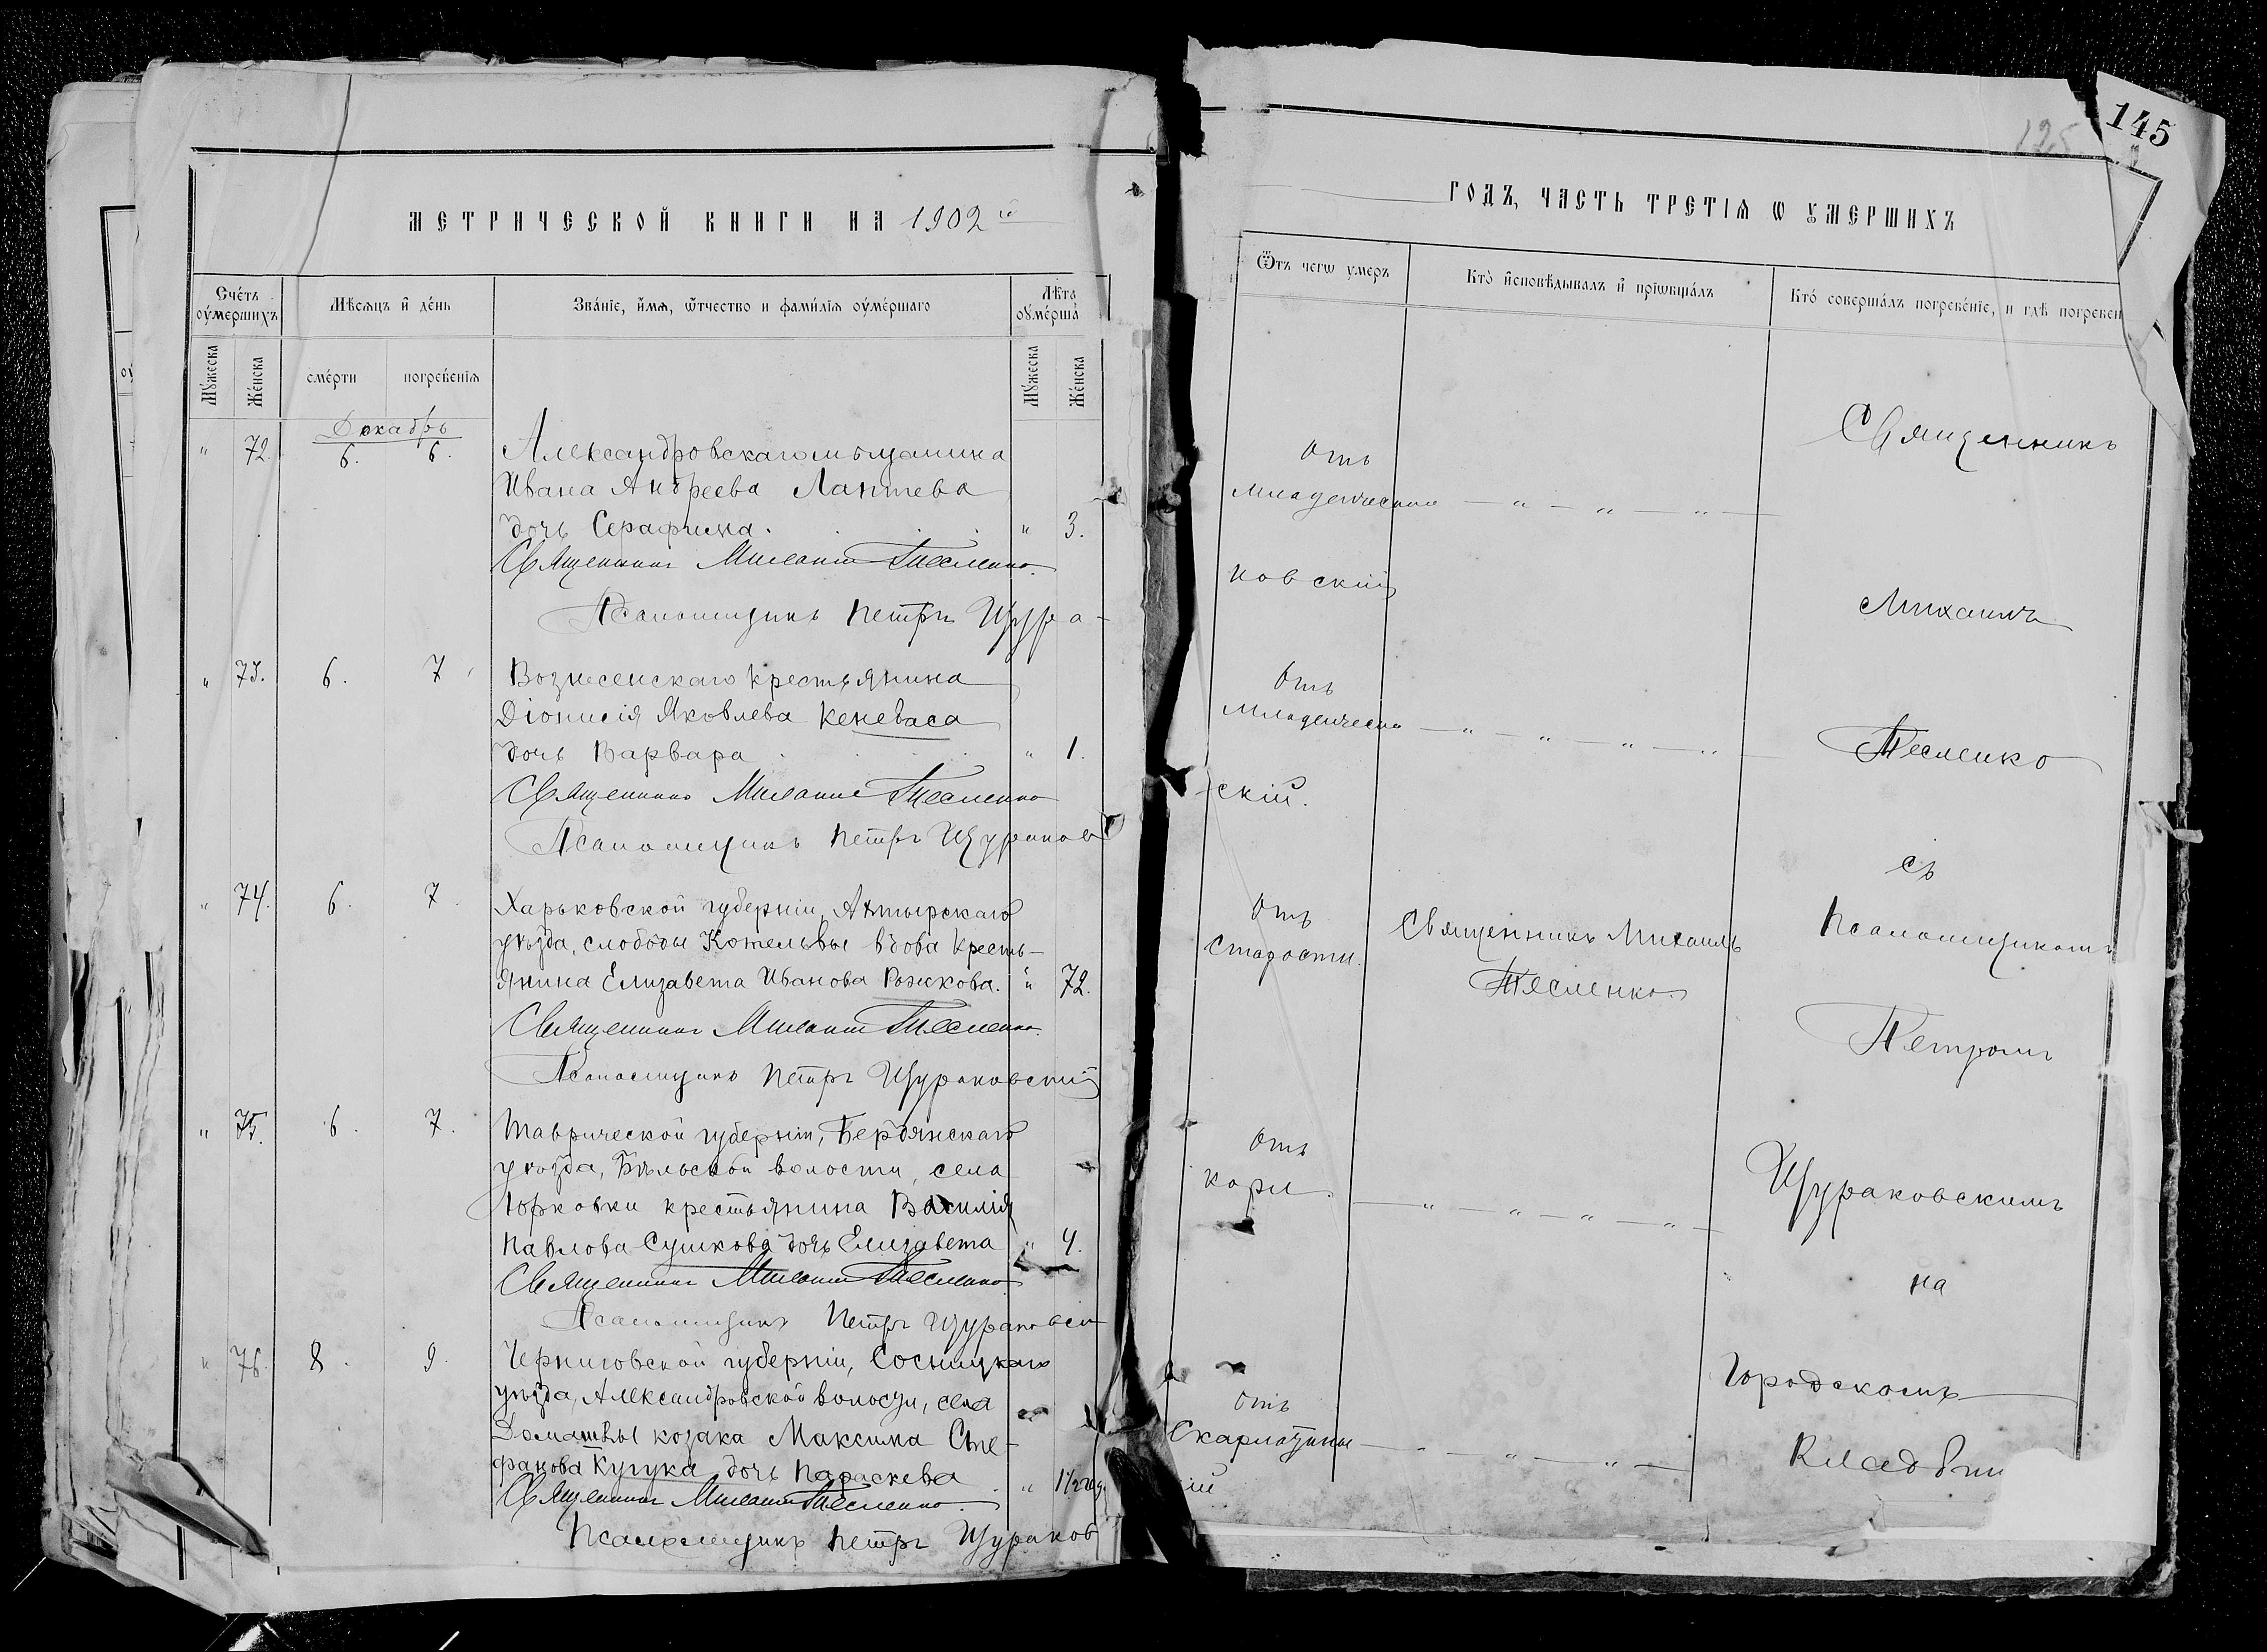 МЕТРИЧЕСКОЙ КНИГИ НА 1902 й
Счéтъ оумершихъ
Мѣсяцъ и дéнь
Звáніе, и́мя, ѿтчество и фами́лія оумéршаго
Лѣта оумéрша
Мужеска
Жéнска
смéрти
погребéнія
Мужеска
Жéнска
Декабрь
" 72. 6. 6. Александровскаго мѣщанина
Ивана Андреева Лаптева
дочь Серафима. " 3.
Священникъ Михаилъ Тесленко.
Псаломщикъ Петръ Щура-
" 73. 6. 7 Вознесенскаго крестьянина
Діонисія Яковлева Кеневаса
дочь Варвара " 1.
Священникъ Михаилъ Тесленко
Псаломщикъ Петръ Щураков
" 74. 6. 7. Харьковской губерніи, Ахтырскаго
уѣзда, слободы Котельвы вдова кресть-
янина Елизавета Иванова Рожкова. " 72.
Священникъ Михаилъ Тесленко.
Псаломщикъ Петръ Щураковскій
" 75. 6. 7. Таврической губерніи, Бердянскаго
уѣзда, Бѣльской волости, села
Юрковки крестьянина Василія
Павлова Сушкова дочь Елизавета " 4.
Священникъ Михаилъ Тесленко.
Псаломщикъ Петръ Щураковск
" 76. 8. 9. Черниговской губерніи, Сосницкаго
уѣзда, Александровской волости, села
козака Максима Сте-
фанова Кугука дочь Параскева " 1½ год
Священникъ Михаилъ Тесленко.
Псаломщикъ Петръ Щураков
145
125
ГОДЪ, ЧАСТЬ ТРЕТІЯ Ѡ УМЕРШИХЪ
Ѿтъ чегѡ умеръ
Ктó исповѣдывалъ и прїѡбщáлъ
Ктó совершáлъ погребéніе, и гдѣ погребен
Отъ
младенческой — " — " — " —
ковскій
Отъ
младенческо — " — " — " — " —
скій.
Отъ
старости.
Священникъ Михаилъ
Тесленко.
Отъ
кори. — " — " — " — " —
Отъ
Скарлатины — " — " — " —
ій
Священникъ
Михаилъ
Тесленко
съ
Псаломщикомъ
Петромъ
Щураковскимъ
на
Городскомъ
Кладби